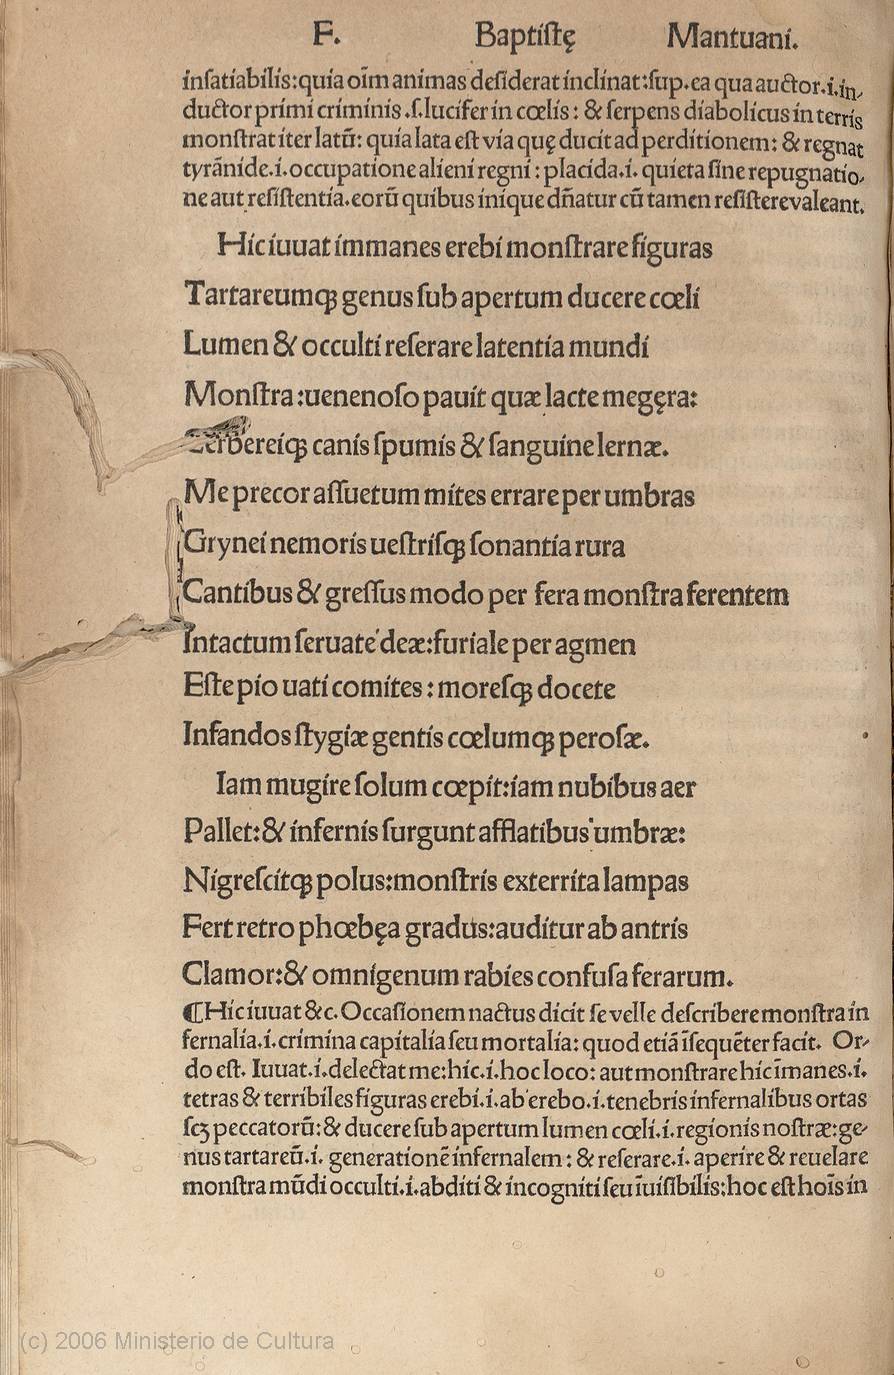 F. Baptistę Mantuani.
insatiabilis:quia oīm animas desiderat inclinat:sup.ea qua auctor.i.in-
ductor primi criminis .s.lucifer in cœlis: & serpens diabolicus in terris
monstrat iter latū: quia lata est via quę ducit ad perditionem: & regnat
tyrānide.i.occupatione alieni regni: placida.i. quieta sine repugnatio-
ne aut resistentia.eorū quibus inique dn̄atur cū tamen resistere valeant.
Hic iuuat immanes erebi monstrare figuras
Tartareumqꝫ genus sub apertum ducere cœli
Lumen & occulti reserare latentia mundi
Monstra:uenenoso pauit quæ lacte megęra:
Cerbereiqꝫ canis spumis & sanguine lernæ.
Me precor assuetum mites errare per umbras
Grynei nemoris uestrisqꝫ sonantia rura
Cantibus & gressus modo per fera monstra ferentem
Intactum seruate deæ:furiale per agmen
Este pio uati comites: moresqꝫ docete
Infandos stygiæ gentis cœlumqꝫ perosæ.
Iam mugire solum cœpit:iam nubibus aer
Pallet:& infernis surgunt afflatibus umbræ:
Nigrescitqꝫ polus:monstris exterrita lampas
Fert retro phœbęa gradus:auditur ab antris
Clamor:& omnigenum rabies confusa ferarum.
¶Hic iuuat &c. Occasionem nactus dicit se velle describere monstra in
fernalia.i.crimina capitalia seu mortalia: quod etiā īsequēter facit. Or-
do est. Iuuat.i.delectat me:hic.i.hoc loco: aut monstrare hic īmanes.i.
tetras & terribiles figuras erebi.i.ab erebo.i.tenebris infernalibus ortas
scꝫ peccatorū:& ducere sub apertum lumen cœli.i.regionis nostræ:ge-
nus tartareū.i. generationē infernalem: & reserare.i. aperire & reuelare
monstra mūdi occulti.i.abditi & incogniti seu īuisibilis:hoc est hoīs in
(c) 2006 Ministerio de Cultura